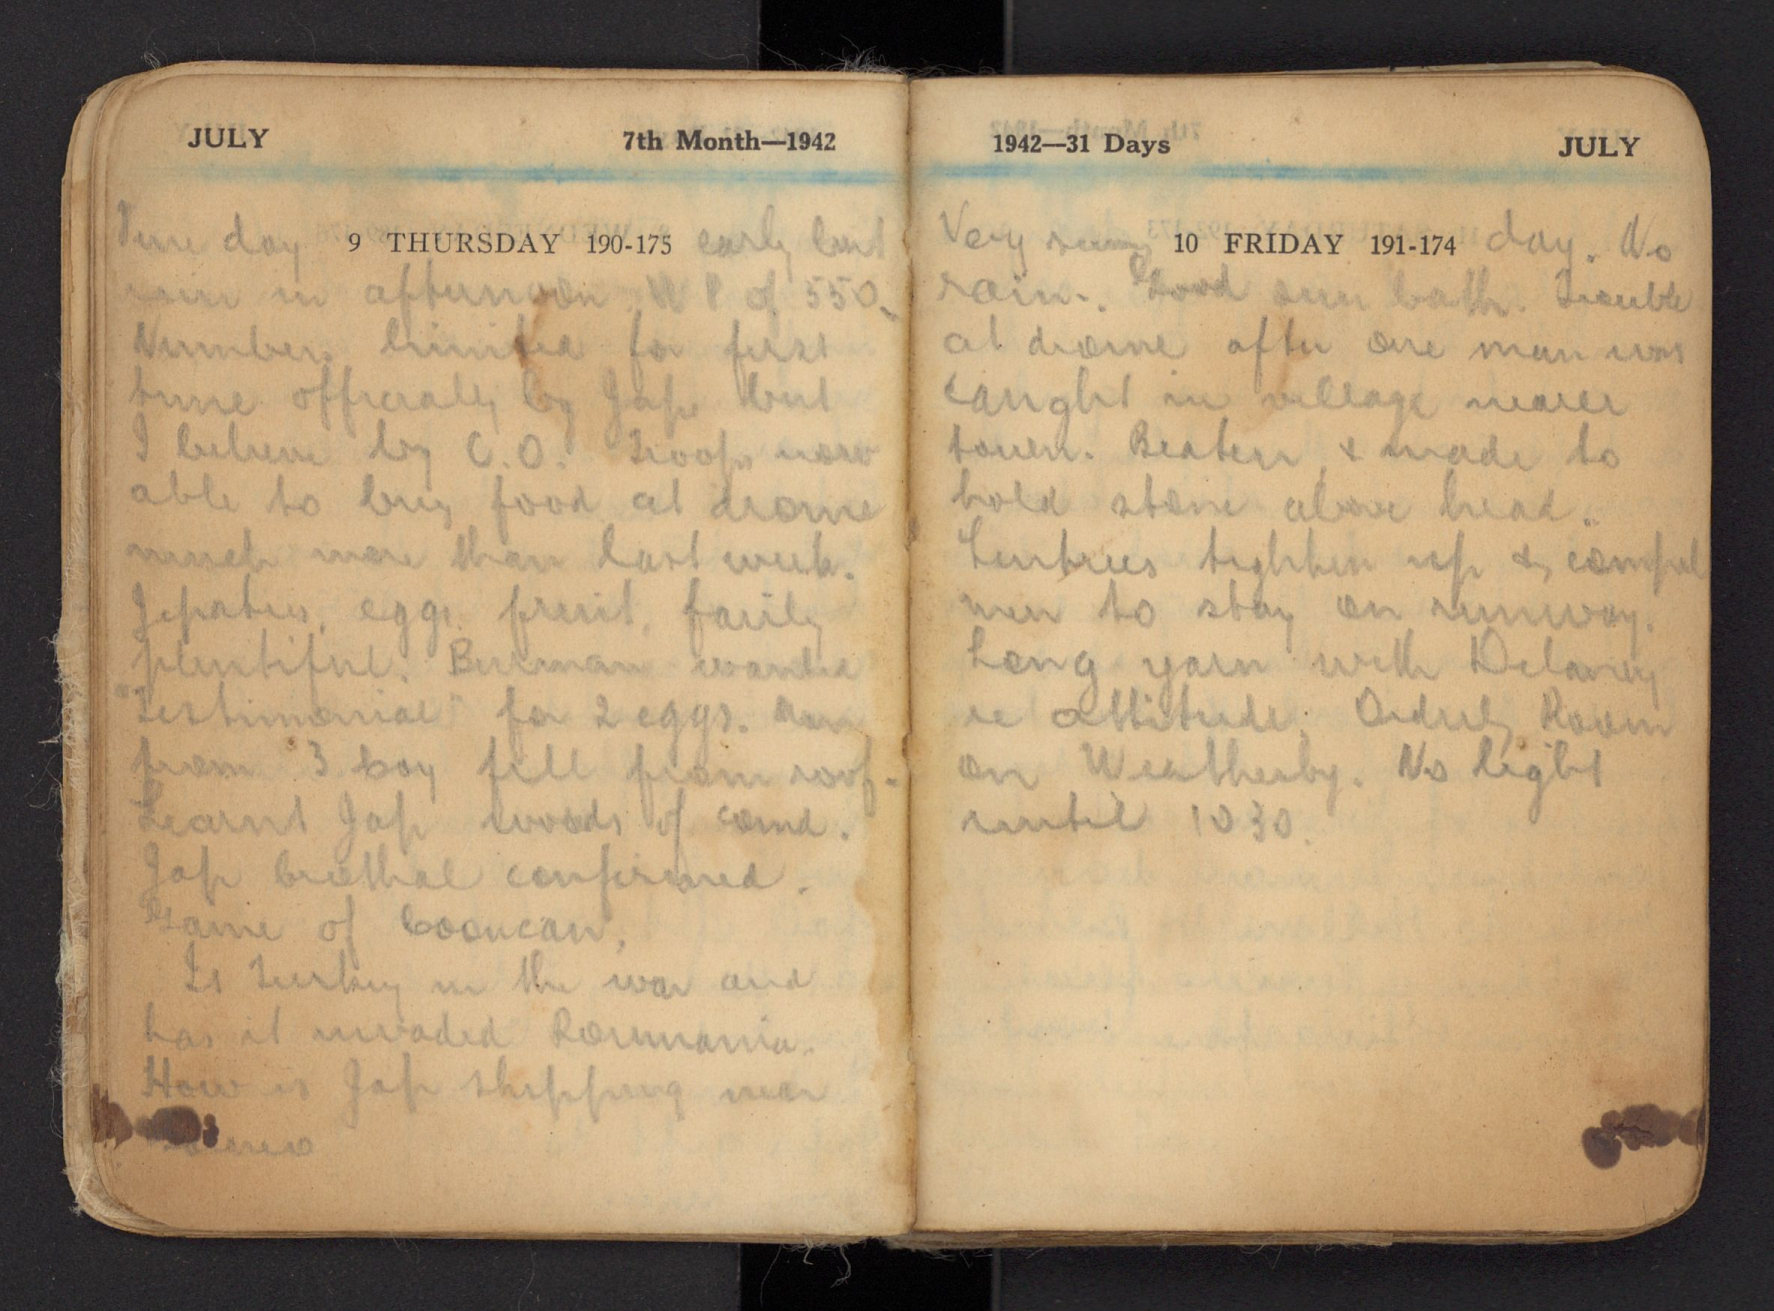 JULY 7th Month—1942
9 THURSDAY 190-175
Fine day early but
rain in afternoon. W P of 550.
Numbers limited for first
time officially by Jap but
I believe by C.O. Troops now
able to buy food at drome
much more than last week.
eggs, fruit, fairly
plentiful. Burman wanted
"Testimonial" for 2 eggs. Man
from 3 Coy fell from roof.
Learnt Jap words of comd.
Jap brothal confirmed.
Game of Cooncan.
Is Turkey in the war and
has it invaded Roumania.
How is Jap shipping near
1942—31 Days JULY
10 FRIDAY 191-174
Very sunny day. No
rain. Good sun bath. Trouble
at drome after one man was
caught in village nearer
town. Beaten & made to
hold stone above head.
Sentries tighten up & compel
men to stay on runway.
Long yarn with Delaney
re attitude. Orderly Room
on Weatherby. No light
until 1030.